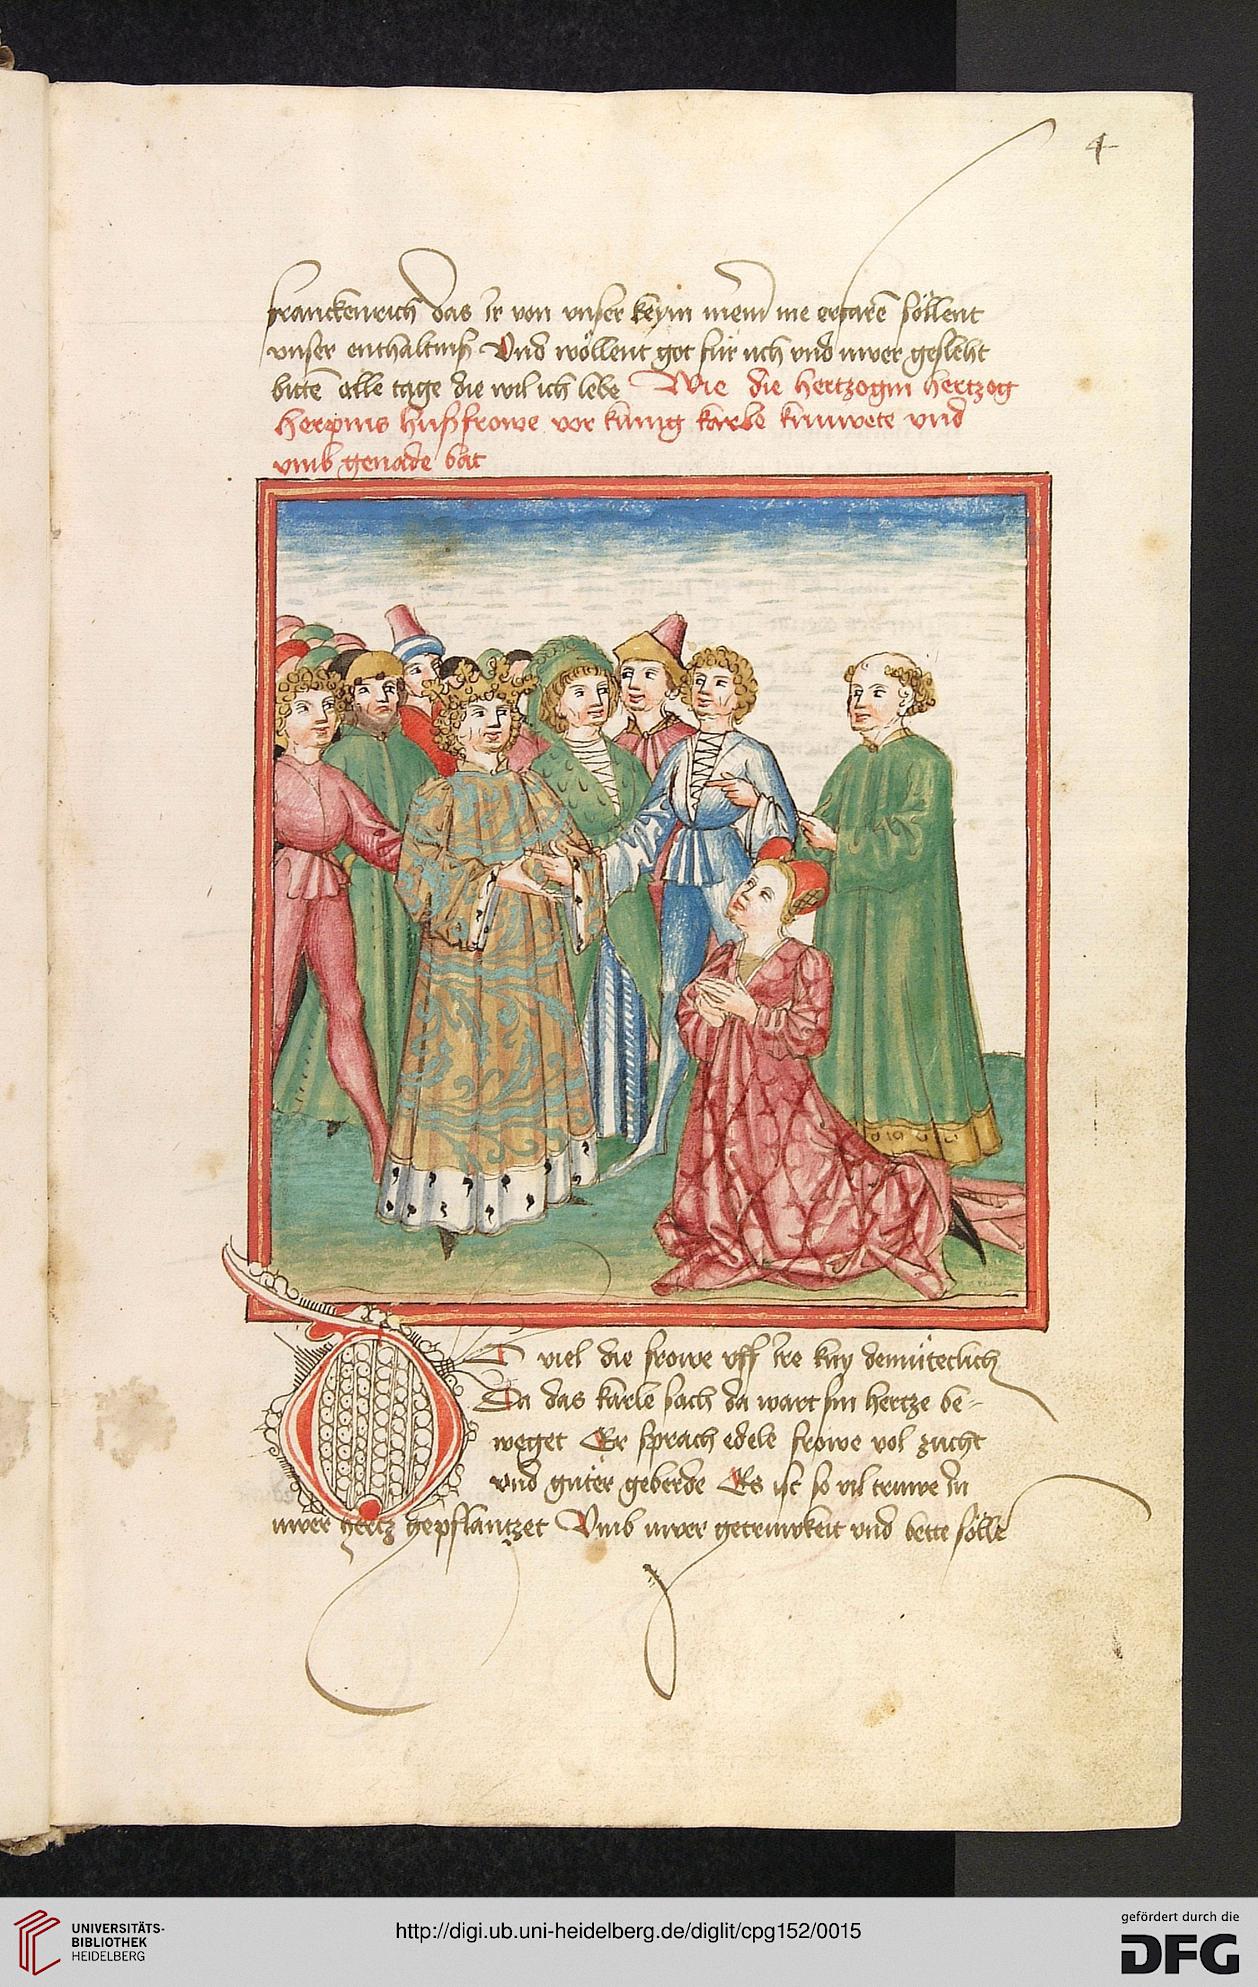 4
franckenrich das ir von vnser keym mem me erfarē söllent
vnser enthaltniß Vnd wöllent got für uch vnd uwer geslecht
bittē alle tage die wil ich lebe Wie die hertzogin hertzog
herpins hußfrowe vor künig karle knuwete vnd
vmb genade bat
O viel die frowe vff ire kny demüteclich
Da das karle sach da wart sin hertze be-
weget Er sprach edele frowe vol zucht
vnd guter geberde Es ist so vil truwe in
uwer hertz gepflantzet Vmb uwer getruwkeit vnd bette sölle
UNIVERSITÄTS-
BIBLIOTHEK
HEIDELBERG
http://digi.ub.uni-heidelberg.de/diglit/cpg152/0015
gefördert durch die
DFG